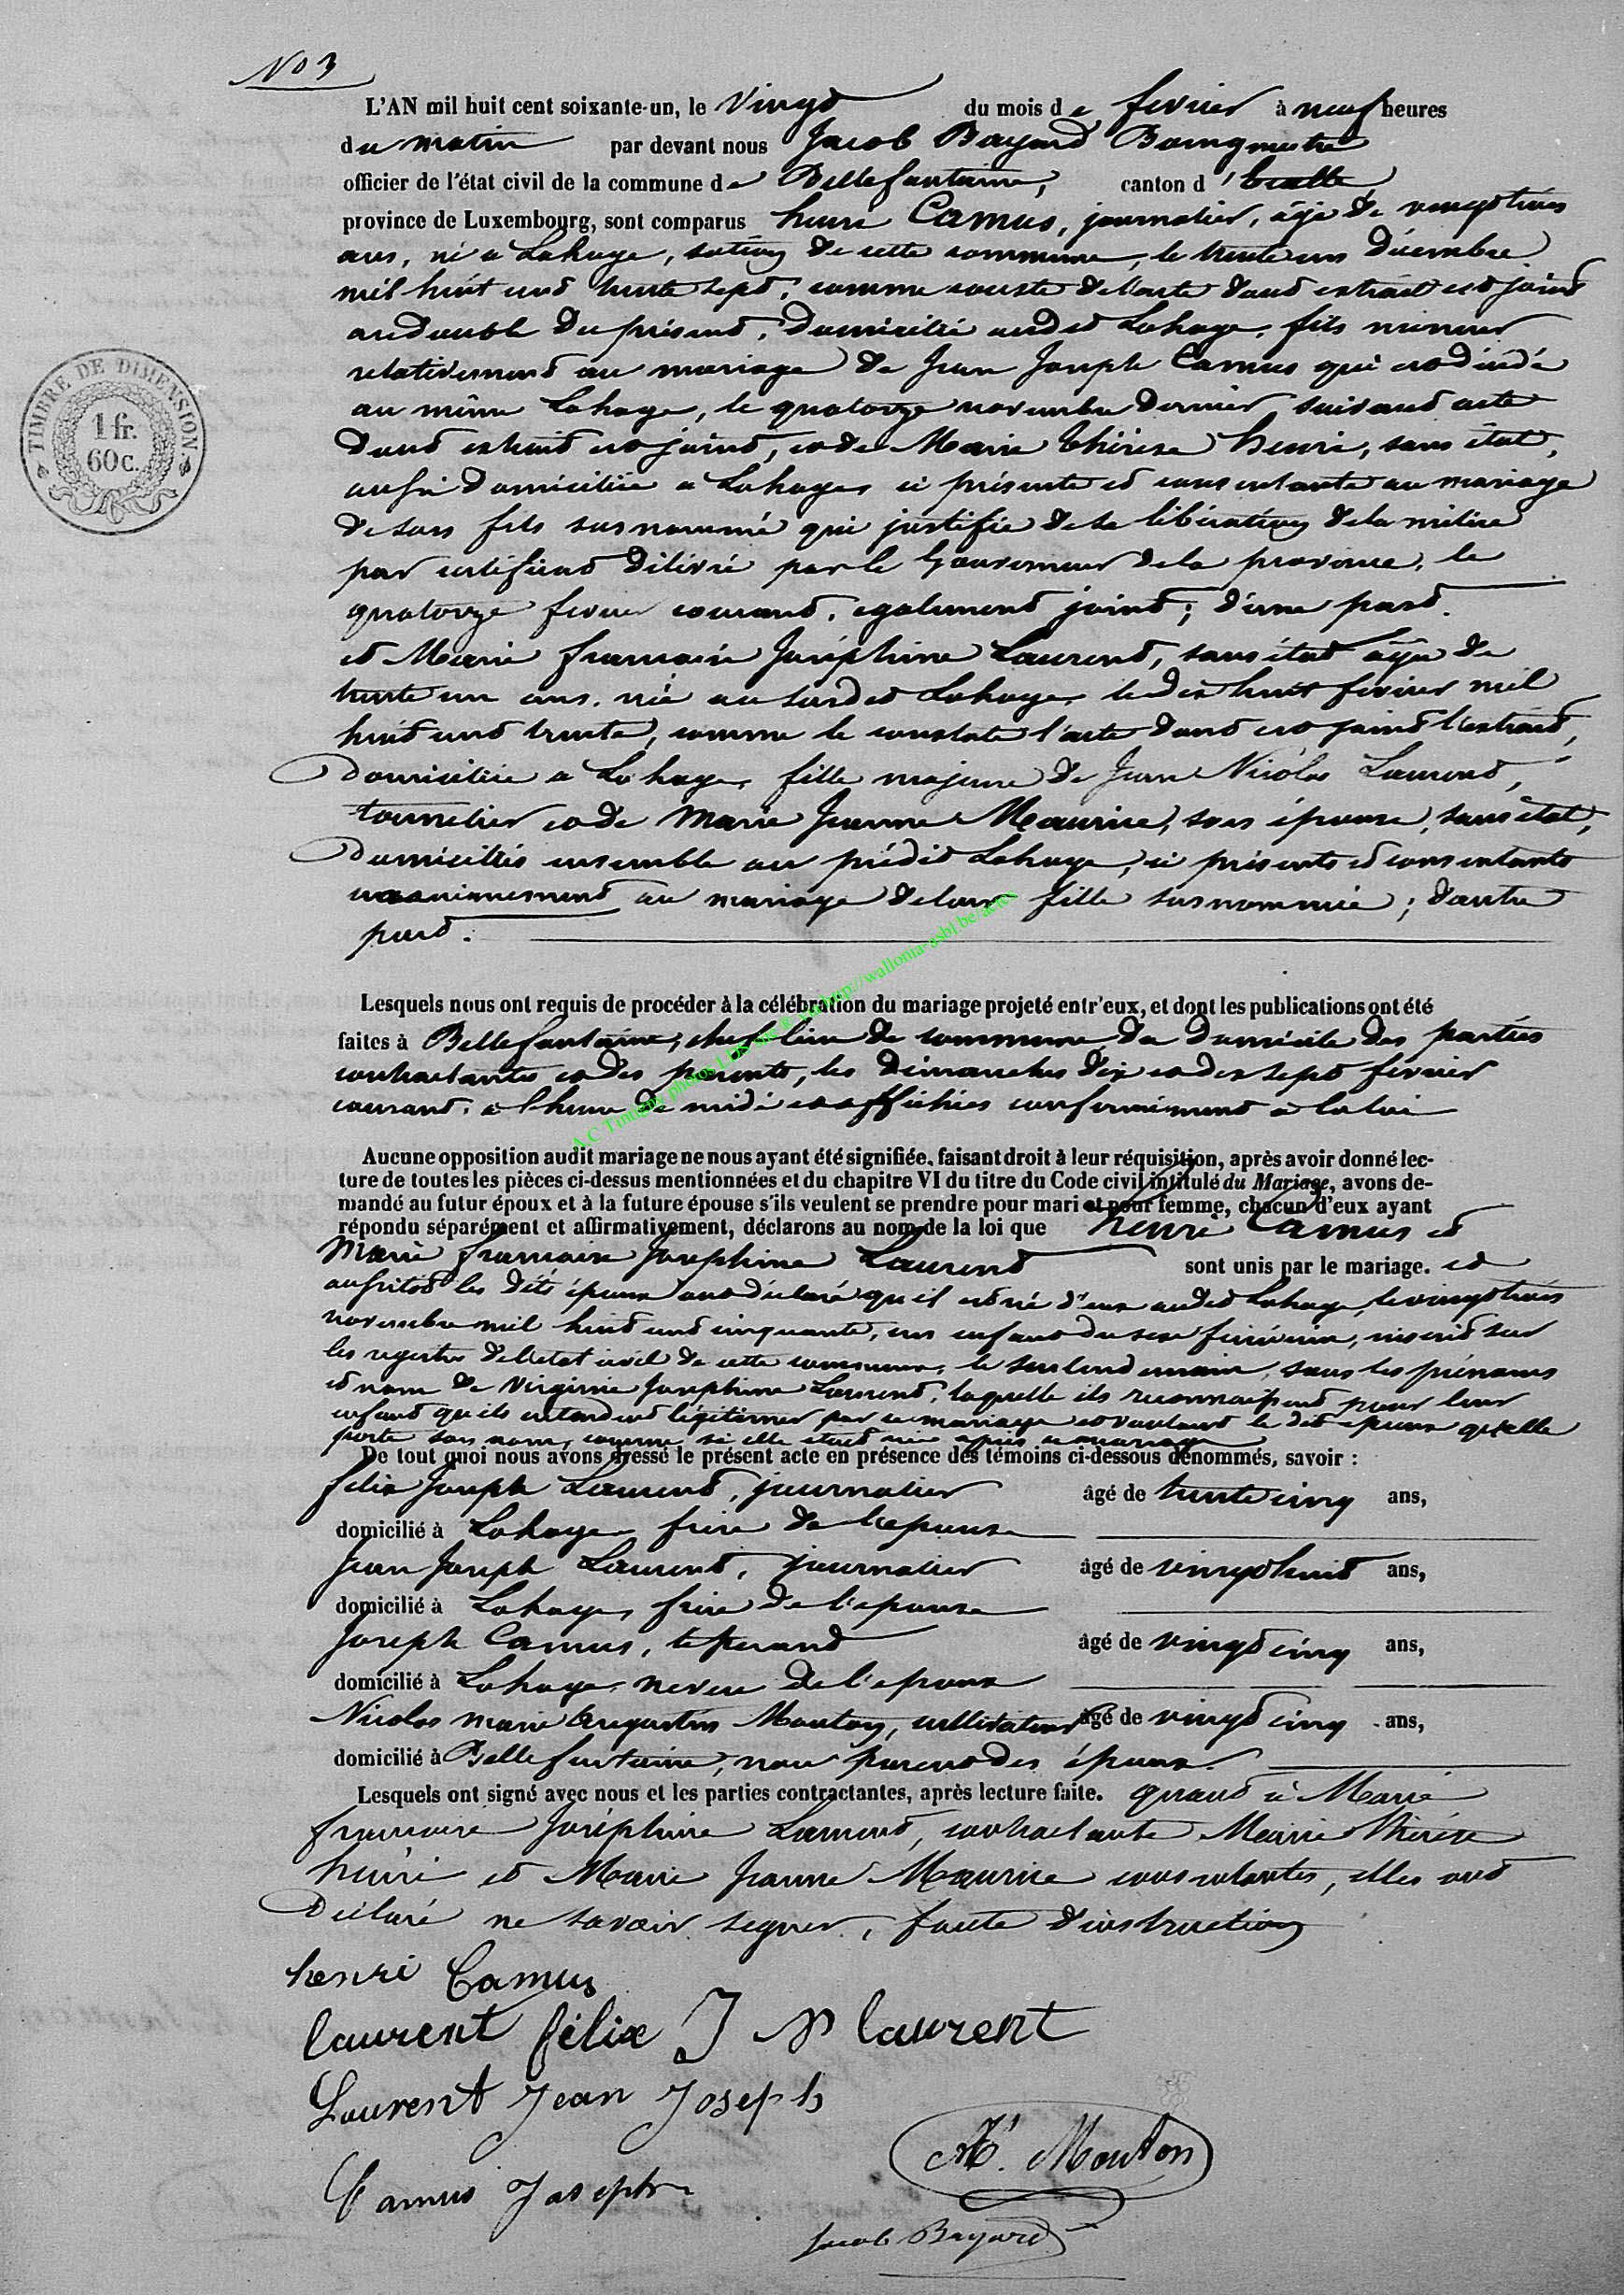 No 3
L'AN mil huit cent soixante-un, le Vingt du mois de fevrier à neuf heures
du matin par devant nous Jacob Bayard Bourgmestre
officier de l'état civil de la commune de Bellefontaine, canton d'Etalle
province de Luxembourg, sont comparus henri Camus, journalier, âgé de vingttrois
ans, né a Lahage, section de cette commune, le trente un Décembre
mil huit cent trente sept, comme conste de l'acte dont extrait est joint
au double du présent, Domicilié audit Lahage, fils mineur
relativement au mariage de Jean Joseph Camus qui est décédé
au même Lahage, le quatorze novembre dernier, suivant acte
dont extrait est joint, et de Marie thérèse henri, sans état,
aussi domiciliée a Lahage, ci présente et consentante au mariage
de son fils susnommé qui justifie de sa libération de la milice
par certificat délivré par le Gouverneur de la province, le
quatorze fevrier courant, egalement joint; d'une part.
et Marie françoise Joséphine Laurent, sans état, âgée de
trente un ans, née au susdit Lahage, le dix huit fevrier mil
huit cent trente, comme le constate l'acte dont est joint l'extrait,
Domiciliée a Lahage, fille majeure de Jean Nicolas Laurent,
tonnelier et de Marie Jeanne Maurice, son épouse, sans état,
Domiciliés ensemble au prédit Lahage, ci présents et consentants
unanimement au mariage de leur fille susnommée; d'autre
part.
TIMBRE DE DIMENSION
1 fr.
60 c.
Lesquels nous ont requis de procéder à la célébration du mariage projeté entr'eux, et dont les publications ont été
faites à Bellefontaine, chef lieu de commune du domicile des parties
contractantes et des parents, les dimanches dix et dix sept fevrier
courant, a l'heure de midi et affichées conformément a la loi
A.C Tintigny photos http://wallonia-asbl.be/actes
Aucune opposition audit mariage ne nous ayant été signifiée, faisant droit à leur réquisition, après avoir donné lec-
ture de toutes les pièces ci-dessus mentionnées et du chapitre VI du titre du Code civil intitulé du Mariage, avons de-
mandé au futur époux et à la future épouse s'ils veulent se prendre pour mari et pour femme, chacun d'eux ayant
répondu séparément et affirmativement, déclarons au nom de la loi que henri Camus et
Marie françoise Josephine Laurent sont unis par le mariage. et
aussitot les dits époux ont déclaré qu'il est né d'eux audit Lahage, le vingttrois
novembre mil huit cent cinquante, un enfant du sexe féminin, inscrit sur
les registres de l'etat civil de cette commune, le surlendemain, sous les prénoms
et nom de Virginie Josephine Laurent, laquelle ils reconnaissent pour leur
enfant qu'ils entendent légitimer par ce mariage et voulant le dit epoux qu'elle
porte son nom, comme si elle etait née après ce mariage
De tout quoi nous avons dressé le présent acte en présence des témoins ci-dessous dénommés, savoir :
felix Joseph Laurent, journalier âgé de trente cinq ans,
domicilié à Lahage, frère de l'epouse
Jean Joseph Laurent, journalier âgé de vingt huit ans,
domicilié à Lahage, frère de l'epouse
Joseph Camus, tisserand âgé de vingt cinq ans,
domicilié à Lahage, neveu de l'epoux
Nicolas Marie Augustin Mouton, cultivateur âgé de vingt cinq ans,
domicilié à Bellefontaine, non parent des époux.
Lesquels ont signé avec nous et les parties contractantes, après lecture faite. quant à Marie
françoise Joséphine Laurent, contractante Marie thérèse
henri et Marie Jeanne Maurice consentantes, elles ont
Déclaré ne savoir signer, faute d'instruction
henri Camus
laurent félix J N laurent
Laurent Jean Joseph
Mouton
Camus Joseph
Jacob Bayard